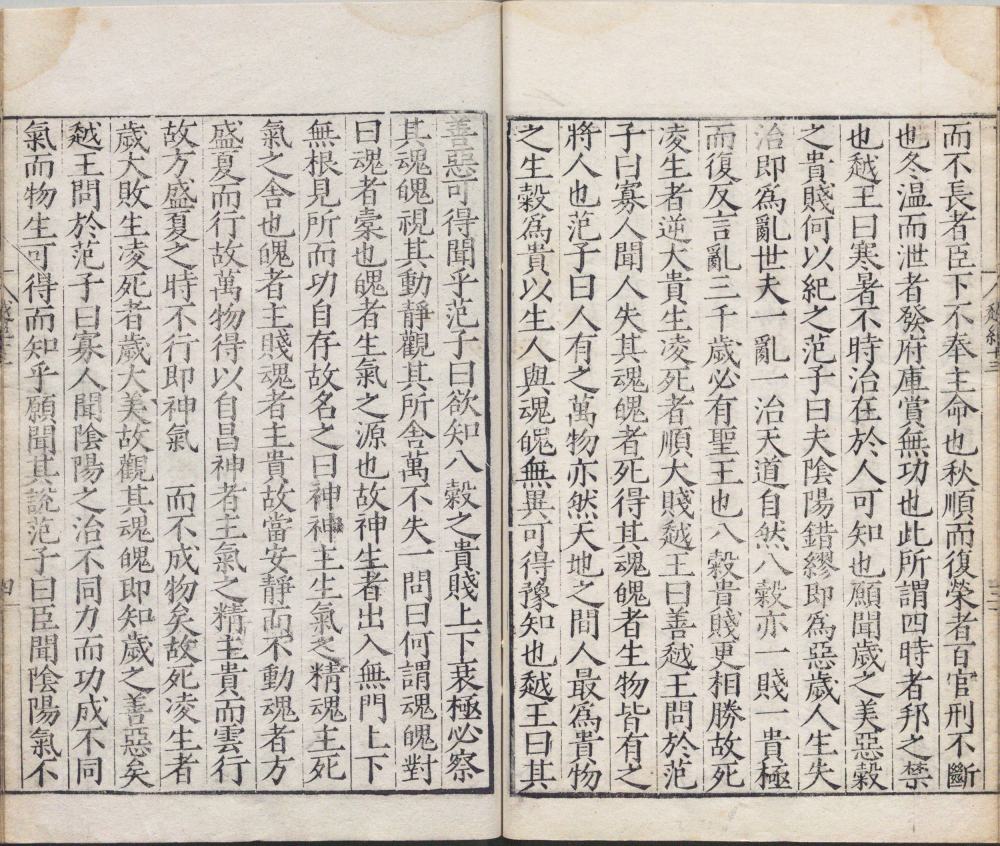 而不長者臣下不奉主命也秋順而復榮者百官刑不斷
也冬温而泄者發府庫賞無功也此所謂四時者邦之禁
也越王曰寒暑不時治在於人可知也願聞歲之美惡穀
之貴賤何以紀之范子曰夫陰陽錯繆即爲惡歲人生失
治即爲亂世夫一亂一治天道自然八穀亦一賤一貴極
而復反言亂三千歲必有聖王也八穀貴賤更相勝故死
凌生者逆大貴生凌死者順大賤越王曰善越王問於范
子曰寡人聞人失其魂魄者死得其魂魄者生物皆有之
將人也范子曰人有之萬物亦然天地之間人最爲貴物
之生穀爲貴以生人與魂魄無異可得豫知也越王曰其
善惡可得聞乎范子曰欲知八穀之貴賤上下衰極必察
其魂魄視其動靜觀其所舍萬不失一問曰何謂魂魄對
曰魂者橐也魄者生氣之源也故神生者出入無門上下
無根見所而功自存故名之曰神神主生氣之精魂主死
氣之舍也魄者主賤魂者主貴故當安靜而不動魂者方
盛夏而行故萬物得以自昌神者主氣之精主貴而雲行
故方盛夏之時不行即神氣 而不成物矣故死凌生者
歲大敗生凌死者歲大美故觀其魂魄即知歲之善惡矣
越王問於范子曰寡人聞陰陽之治不同力而功成不同
氣而物生可得而知乎願聞其說范子曰臣聞陰陽氣不
四